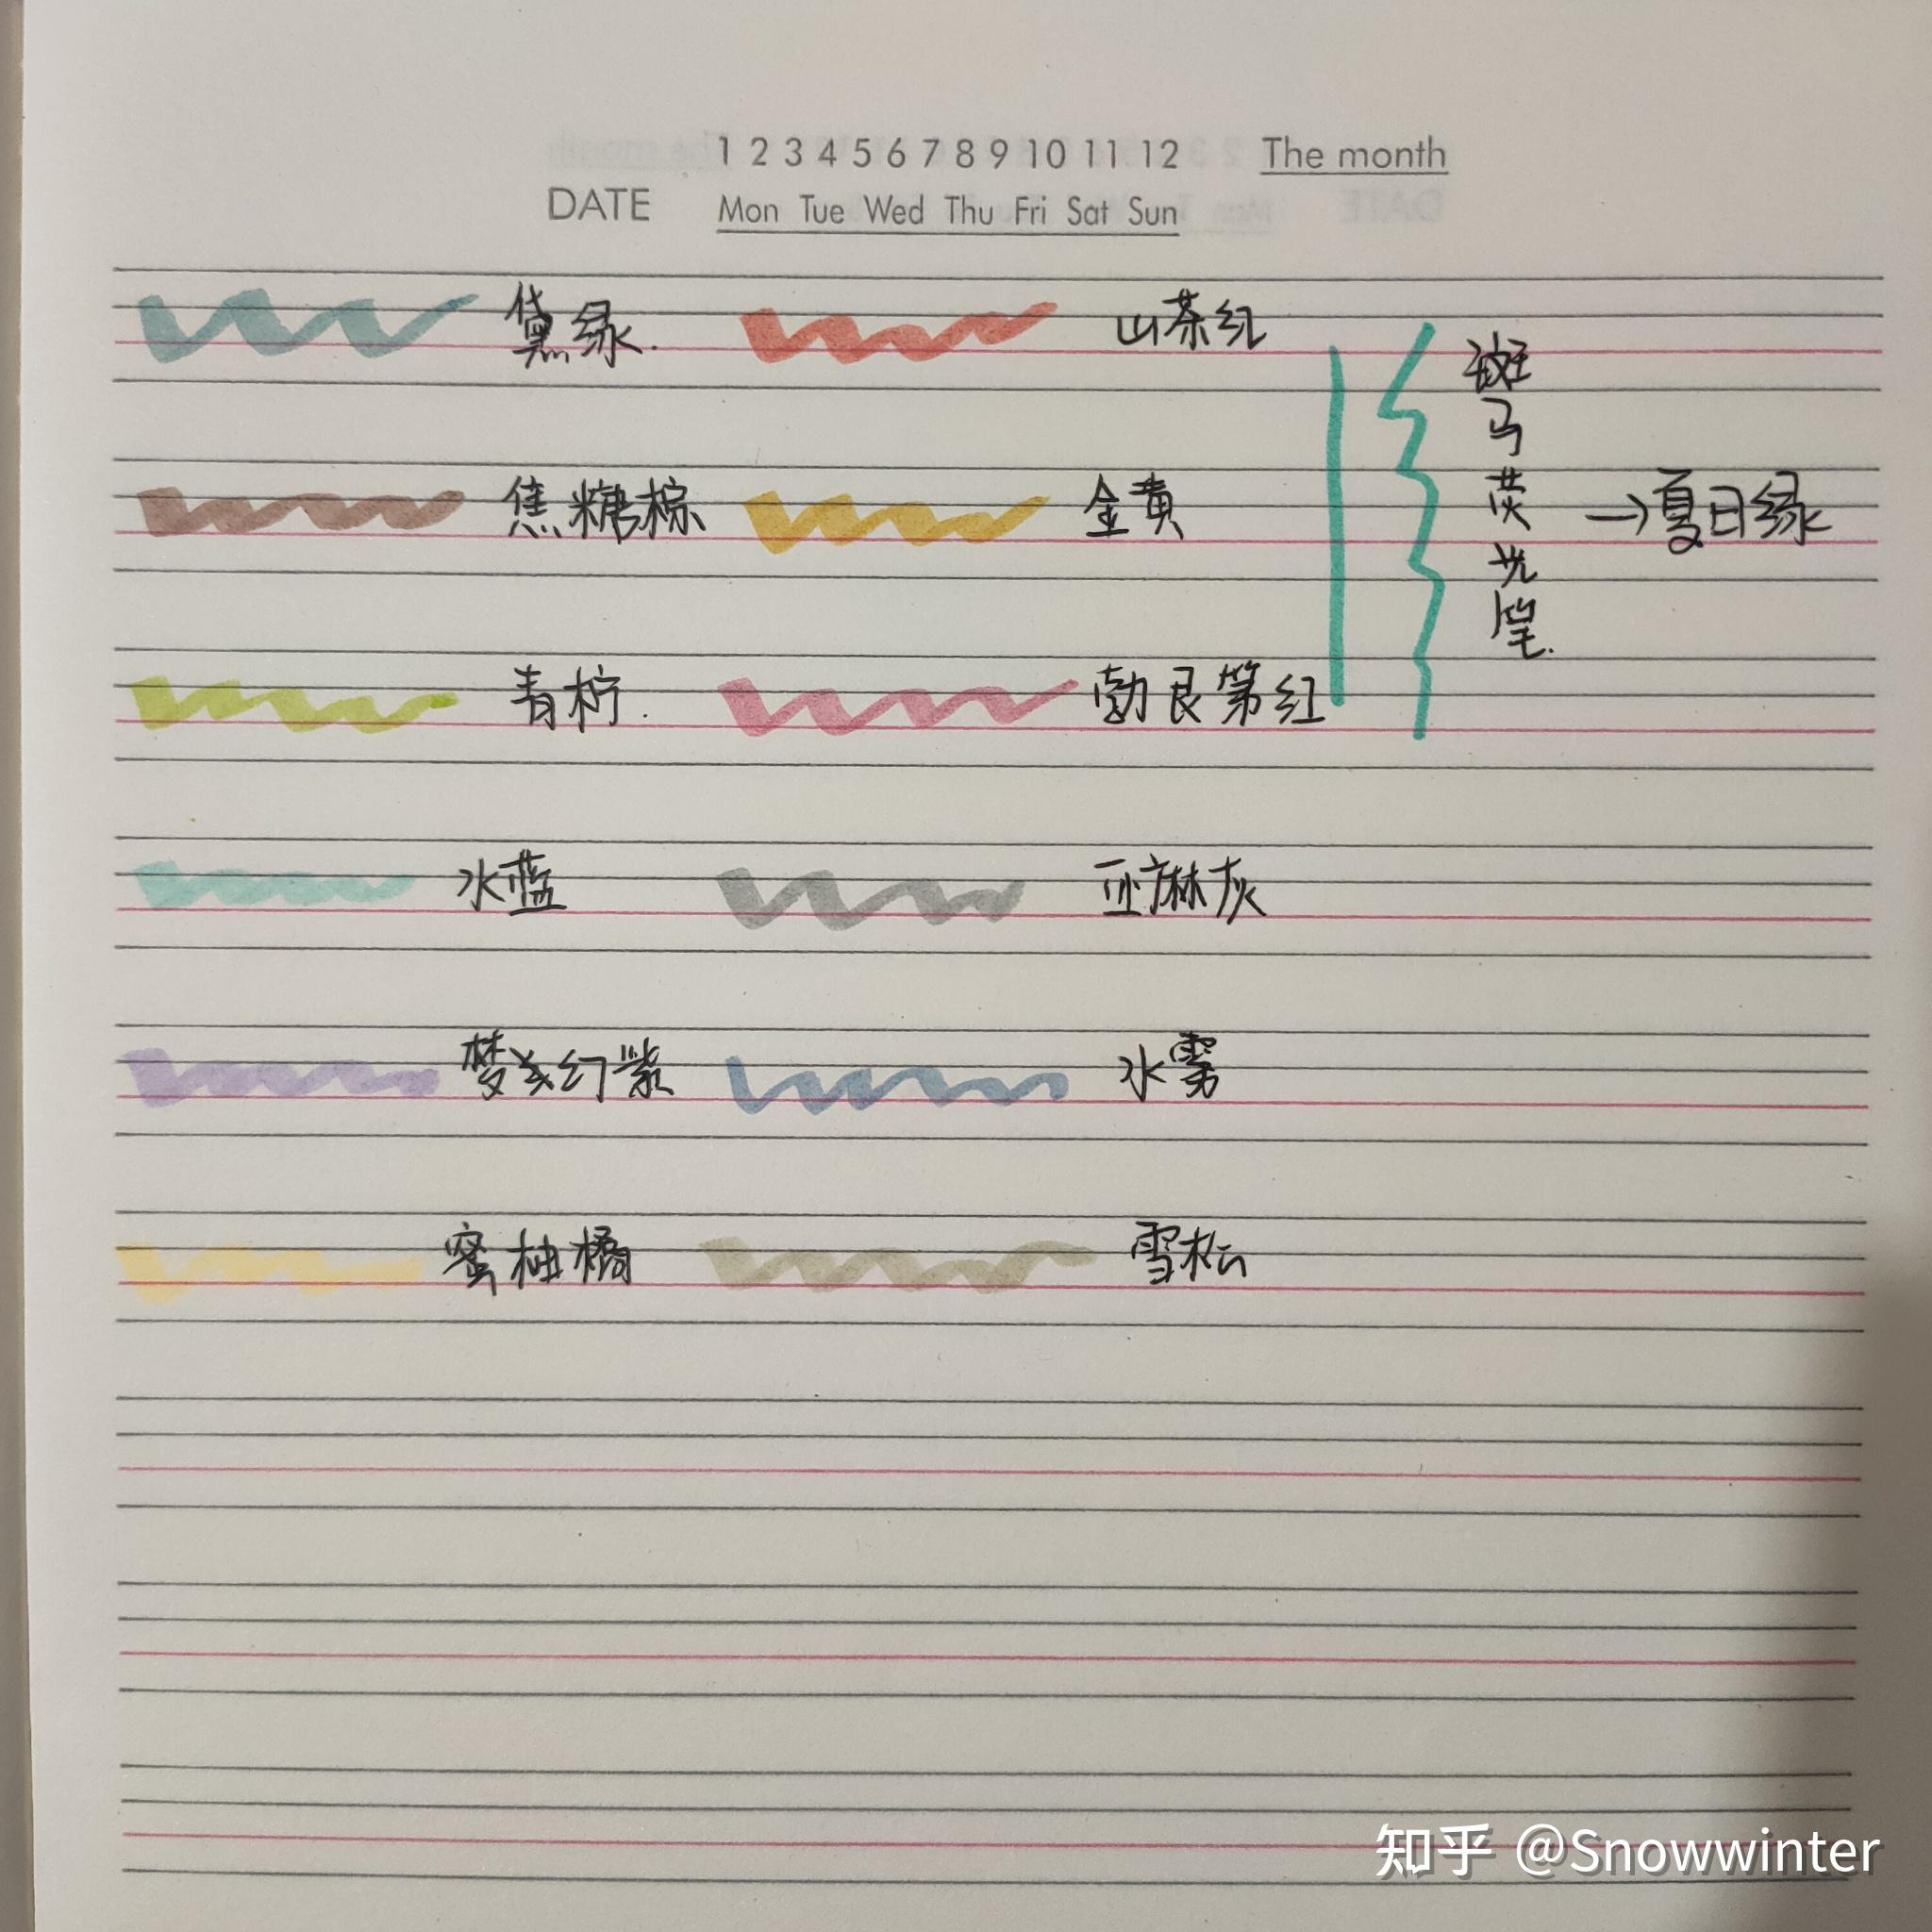 1 2 3 4 5 6 7 8 9 10 11 12 The month
DATE Mon Tue Wed Thu Fri Sat Sun
黛绿. 山茶红
焦糖棕 金黄
青柠. 勃艮第红
水蓝 亚麻灰
梦幻紫 水雾
蜜柚橘 雪松
斑马荧光笔.
→夏日绿
知乎 @Snowwinter